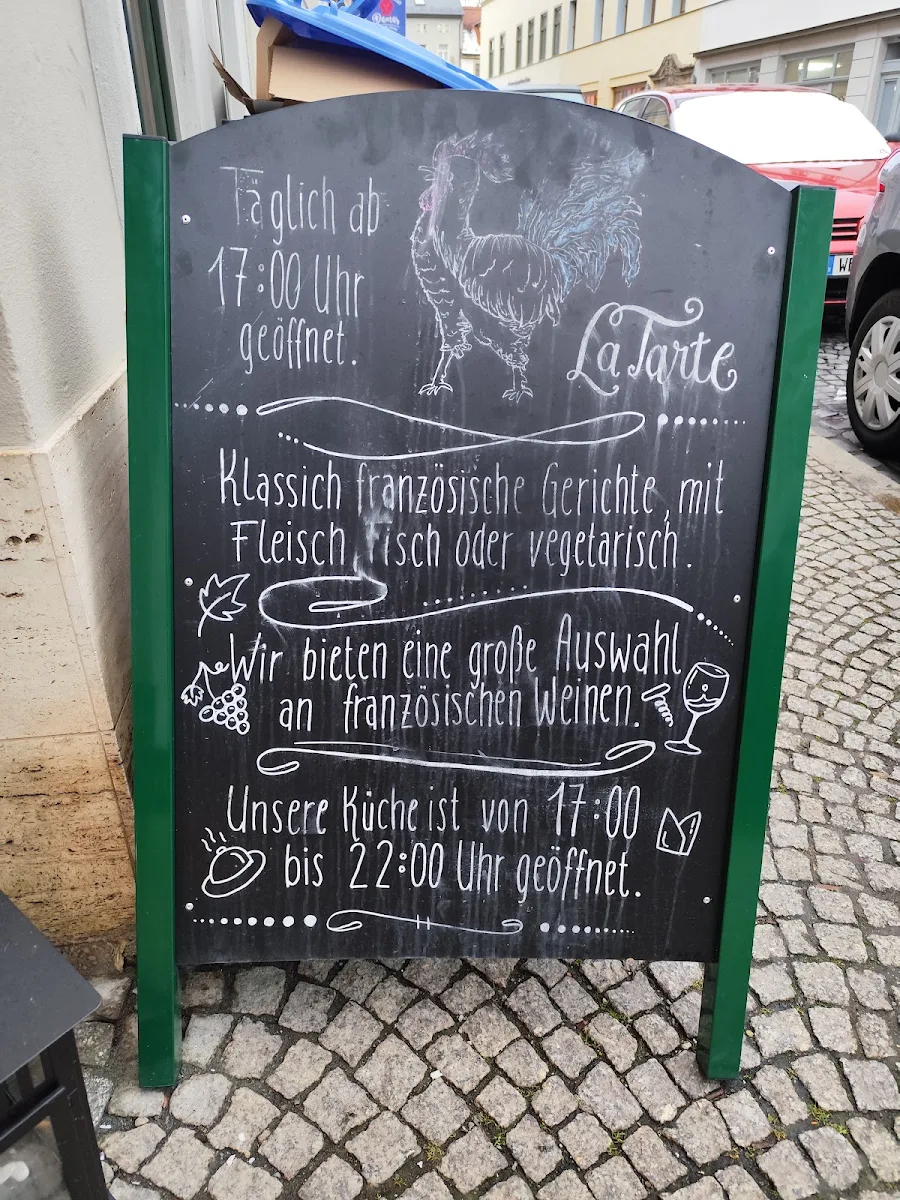 Täglich ab
17:00 Uhr
geöffnet.
La Tarte
Klassich französische Gerichte, mit
Fleisch Fisch oder vegetarisch.
Wir bieten eine große Auswahl
an französischen Weinen.
Unsere Küche ist von 17:00
bis 22:00 Uhr geöffnet.
WE